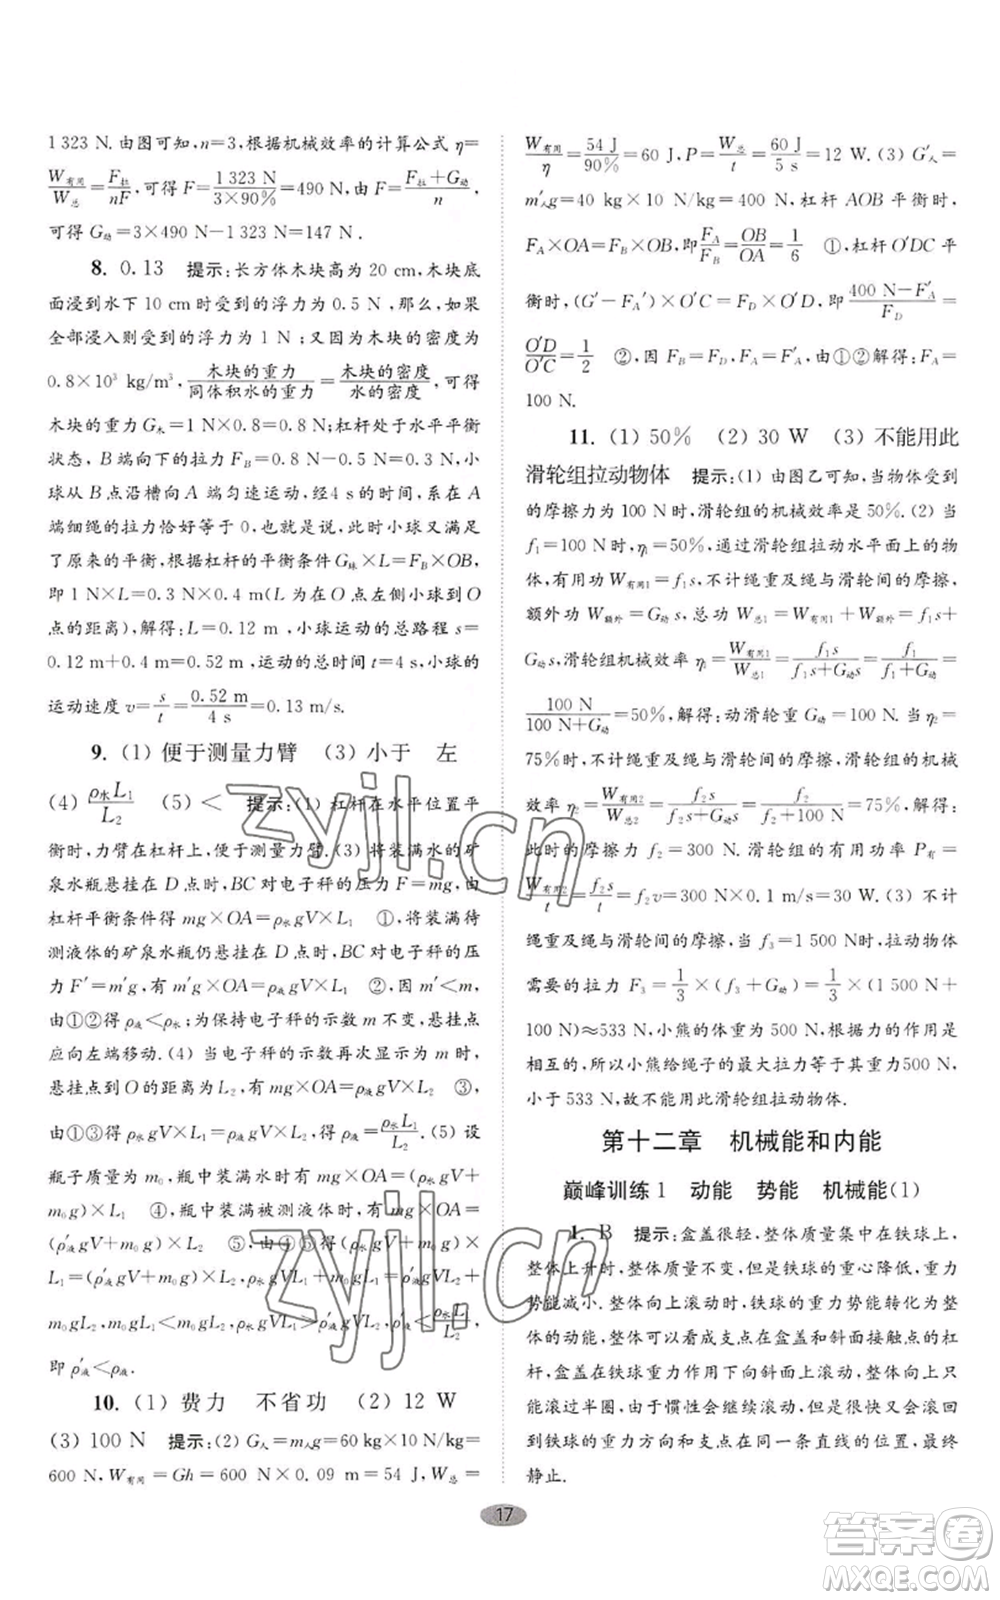 1 323 N. 由图可知, n=3, 根据机械效率的计算公式 η=
W有用/W总=F拉/nF, 可得 F=1 323 N/(3×90%)=490 N, 由 F=(F拉+G动)/n,
可得 G动=3×490 N-1 323 N=147 N.
8. 0.13 提示:长方体木块高为 20 cm, 木块底
面浸到水下 10 cm 时受到的浮力为 0.5 N, 那么, 如果
全部浸入则受到的浮力为 1 N;又因为木块的密度为
0.8×10³ kg/m³, 木块的重力/同体积水的重力=木块的密度/水的密度, 可得
木块的重力 G木=1 N×0.8=0.8 N;杠杆处于水平平衡
状态, B 端向下的拉力 FB=0.8 N-0.5 N=0.3 N, 小
球从 B 点沿槽向 A 端匀速运动, 经4 s 的时间, 系在 A
端细绳的拉力恰好等于 0, 也就是说, 此时小球又满足
了原来的平衡, 根据杠杆的平衡条件 G球×L=FB×OB,
即 1 N×L=0.3 N×0.4 m(L 为在 O 点左侧小球到 O
点的距离), 解得:L=0.12 m, 小球运动的总路程 s=
0.12 m+0.4 m=0.52 m, 运动的总时间 t=4 s, 小球的
运动速度 v=s/t=0.52 m/4 s=0.13 m/s.
9. (1) 便于测量力臂 (3) 小于 左
(4) ρ水L₁/L₂ (5) < 提示:(1) 杠杆在水平位置平
衡时, 力臂在杠杆上, 便于测量力臂. (3) 将装满水的矿
泉水瓶悬挂在 D 点时, BC 对电子秤的压力 F=mg, 由
杠杆平衡条件得 mg×OA=ρ水gV×L₁ ①, 将装满待
测液体的矿泉水瓶仍悬挂在 D 点时, BC 对电子秤的压
力 F′=m′g, 有 m′g×OA=ρ液gV×L₁ ②, 因 m′<m,
由①②得 ρ液<ρ水;为保持电子秤的示数 m 不变, 悬挂点
应向左端移动. (4) 当电子秤的示数再次显示为 m 时,
悬挂点到 O 的距离为 L₂, 有 mg×OA=ρ液gV×L₂ ③,
由①③得 ρ水gV×L₁=ρ液gV×L₂, ρ液=ρ水L₁/L₂. (5) 设
瓶子质量为 m₀, 瓶中装满水时有 mg×OA=(ρ水gV+
m₀g)×L₁ ④, 瓶中装满被测液体时, 有 mg×OA=
(ρ′液gV+m₀g)×L₂ ⑤, 由④⑤得 (ρ水gV+m₀g)×
L₁=(ρ′液gV+m₀g)×L₂, 则 ρ水gVL₁=ρ′液gVL₂+
m₀gL₂-m₀gL₁<ρ′液gVL₂, 所以 ρ′液>ρ水L₁/L₂,
即 ρ′液<ρ液.
10. (1) 费力 不省功 (2) 12 W
(3) 100 N 提示:(2) G人=m人g=60 kg×10 N/kg=
600 N, W有用=Gh=600 N×0.09 m=54 J, W总=
W有用/η=54 J/90%=60 J, P=W总/t=60 J/5 s=12 W. (3) G′人=
m′人g=40 kg×10 N/kg=400 N, 杠杆 AOB 平衡时,
FA×OA=FB×OB, 即FA/FB=OB/OA=1/6 ①, 杠杆 O′DC 平
衡时, (G′-FA′)×O′C=FD×O′D, 即(400 N-F′A)/FD=
O′D/O′C=1/2 ②, 因 FB=FD, FA=F′A, 由①②解得:FA=
100 N.
11. (1) 50% (2) 30 W (3) 不能用此
滑轮组拉动物体 提示:(1) 由图乙可知, 当物体受到
的摩擦力为 100 N 时, 滑轮组的机械效率是 50%. (2) 当
f₁=100 N时, η₁=50%, 通过滑轮组拉动水平面上的物
体, 有用功 W有用1=f₁s, 不计绳重及绳与滑轮的摩擦,
额外功 W额外=G动s, 总功 W总1=W有用1+W额外=f₁s+
G动s, 滑轮组机械效率 η₁=W有用1/W总1=f₁s/(f₁s+G动s)=f₁/(f₁+G动)=
100 N/(100 N+G动)=50%, 解得:动滑轮重 G动=100 N. 当 η₂=
75%时, 不计绳重及绳与滑轮间的摩擦, 滑轮组的机械
效率 η₂=W有用2/W总2=f₂s/(f₂s+G动s)=f₂/(f₂+G动)=75%, 解得:
此时的摩擦力 f₂=300 N. 滑轮组的有用功率 P有=
W有用2/t=f₂s/t=f₂v=300 N×0.1 m/s=30 W. (3) 不计
绳重及绳与滑轮间的摩擦, 当 f₃=1 500 N时, 拉动物体
需要的拉力 F₃=1/3×(f₃+G动)=1/3×(1 500 N+
100 N)≈533 N, 小熊的体重为 500 N, 根据力的作用是
相互的, 所以小熊给绳子的最大拉力等于其重力500 N,
小于 533 N, 故不能用此滑轮组拉动物体.
第十二章 机械能和内能
巅峰训练 1 动能 势能 机械能(1)
1. B 提示:盒盖很轻, 整体质量集中在铁球上,
整体上升时, 整体质量不变, 但是铁球的重心降低, 重力
势能减小. 整体向上滚动时, 铁球的重力势能转化为整
体的动能, 整体可以看成支点在盒盖和斜面接触点的杠
杆, 盒盖在铁球重力作用下向斜面上滚动, 当铁球随盒
盖滚过半圈, 由于惯性会继续滚动, 然后又会滚回到滚
回到铁球的重力方向和支点在同一条直线的位置, 最终
静止.
17
zyjl.cn
zyjl.cn
答案圈
MXQE.COM